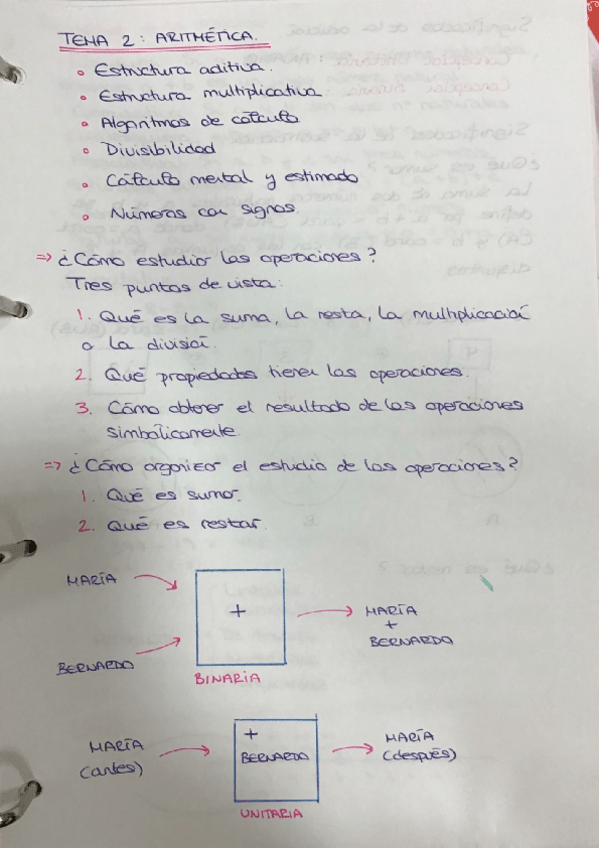 TEMA 2: ARITMÉTICA.
• Estructura aditiva.
• Estructura multiplicativa.
• Algoritmos de cálculo
• Divisibilidad
• Cálculo mental y estimado
• Números con signos.
=> ¿Cómo estudiar las operaciones?
Tres puntos de vista:
1. Qué es la suma, la resta, la multiplicació
o la divisió.
2. Qué propiedades tienen las operaciones.
3. Cómo obtener el resultado de las operaciones
simbólicamente.
=> ¿Cómo organizar el estudio de las operaciones?
1. Qué es sumar.
2. Qué es restar.
MARÍA
BERNARDO
+
MARÍA
+
BERNARDO
BINARIA
MARÍA
(antes)
+
BERNARDO
MARÍA
(después)
UNITARIA